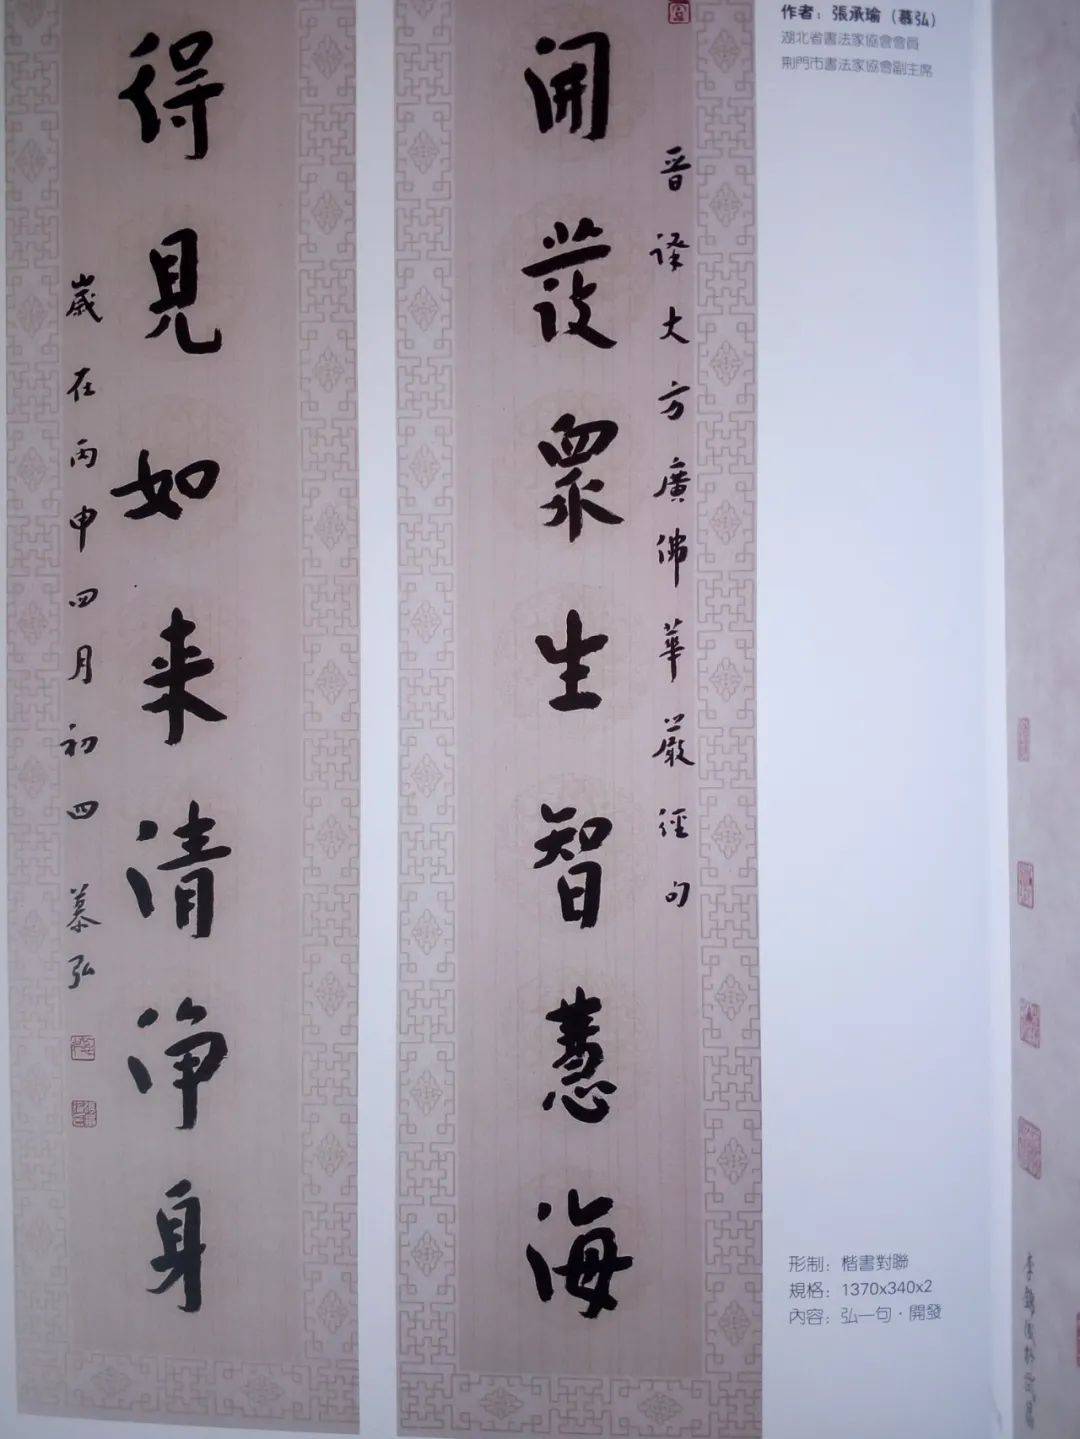 晋譯大方廣佛華嚴經句
開發眾生智慧海
得見如来清淨身
歲在丙申四月初四 慕弘
作者：張承瑜（慕弘）
湖北省書法家協會會員
荆門市書法家協會副主席
形制：楷書對聯
規格：1370x340x2
內容：弘一句·開發